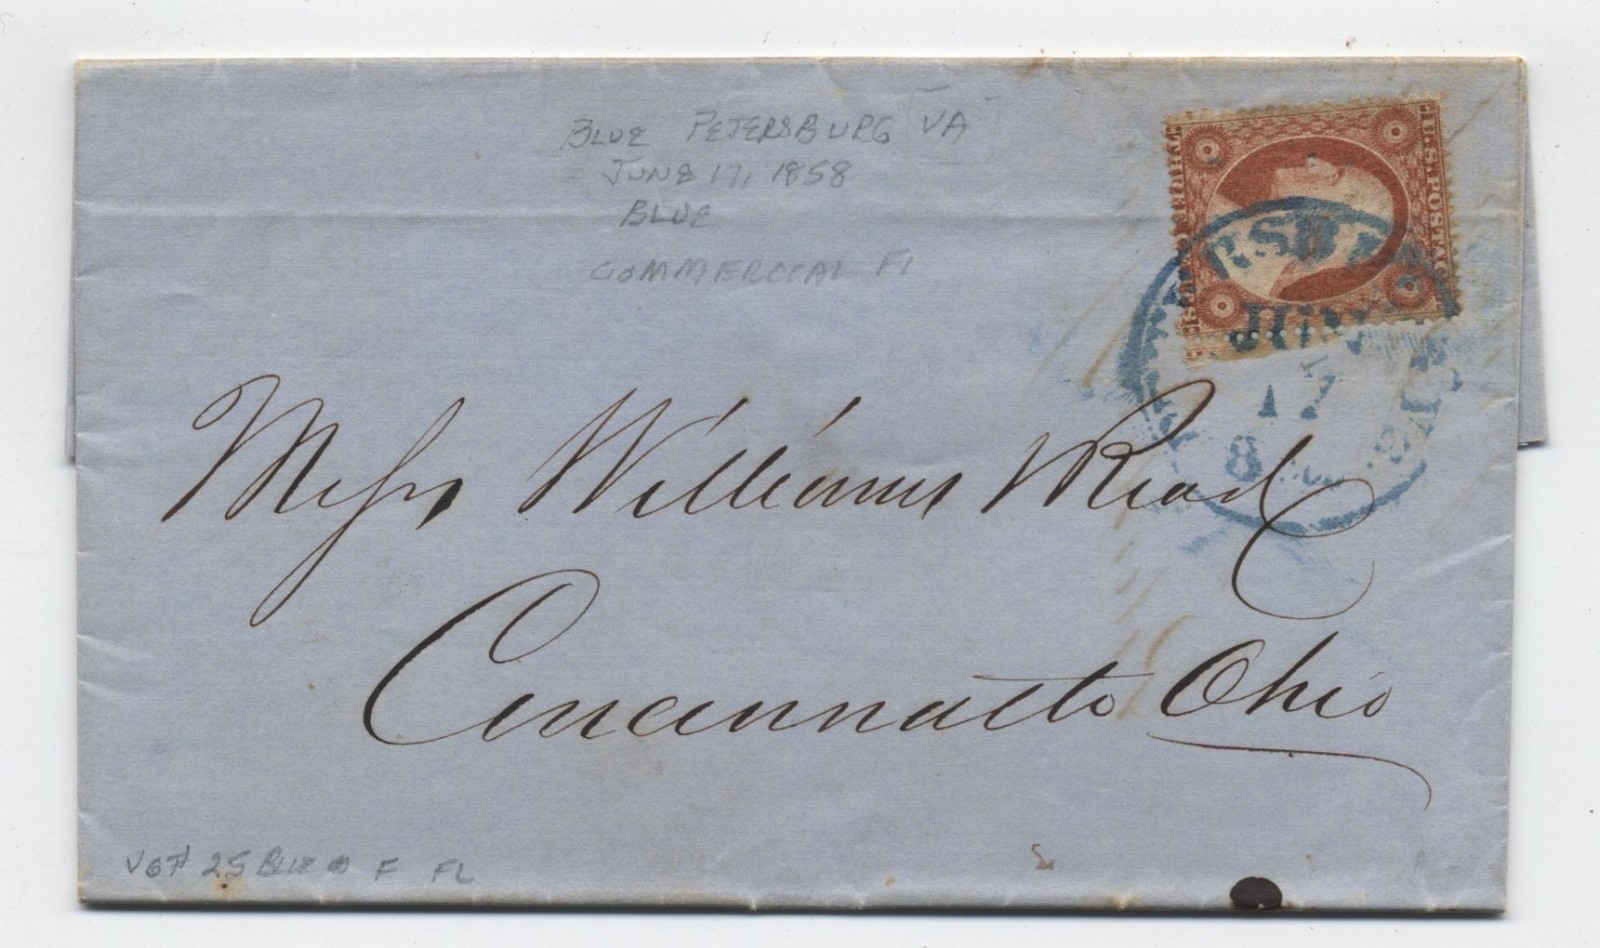 BLUE PETERSBURG VA
JUNE 17, 1858
BLUE
COMMERCIAL FL
U.S. POSTAGE
THREE CENTS
RSBU
JUN
17
Va.
Mess Williams Read
Cincinnatto Ohio
25 F FL